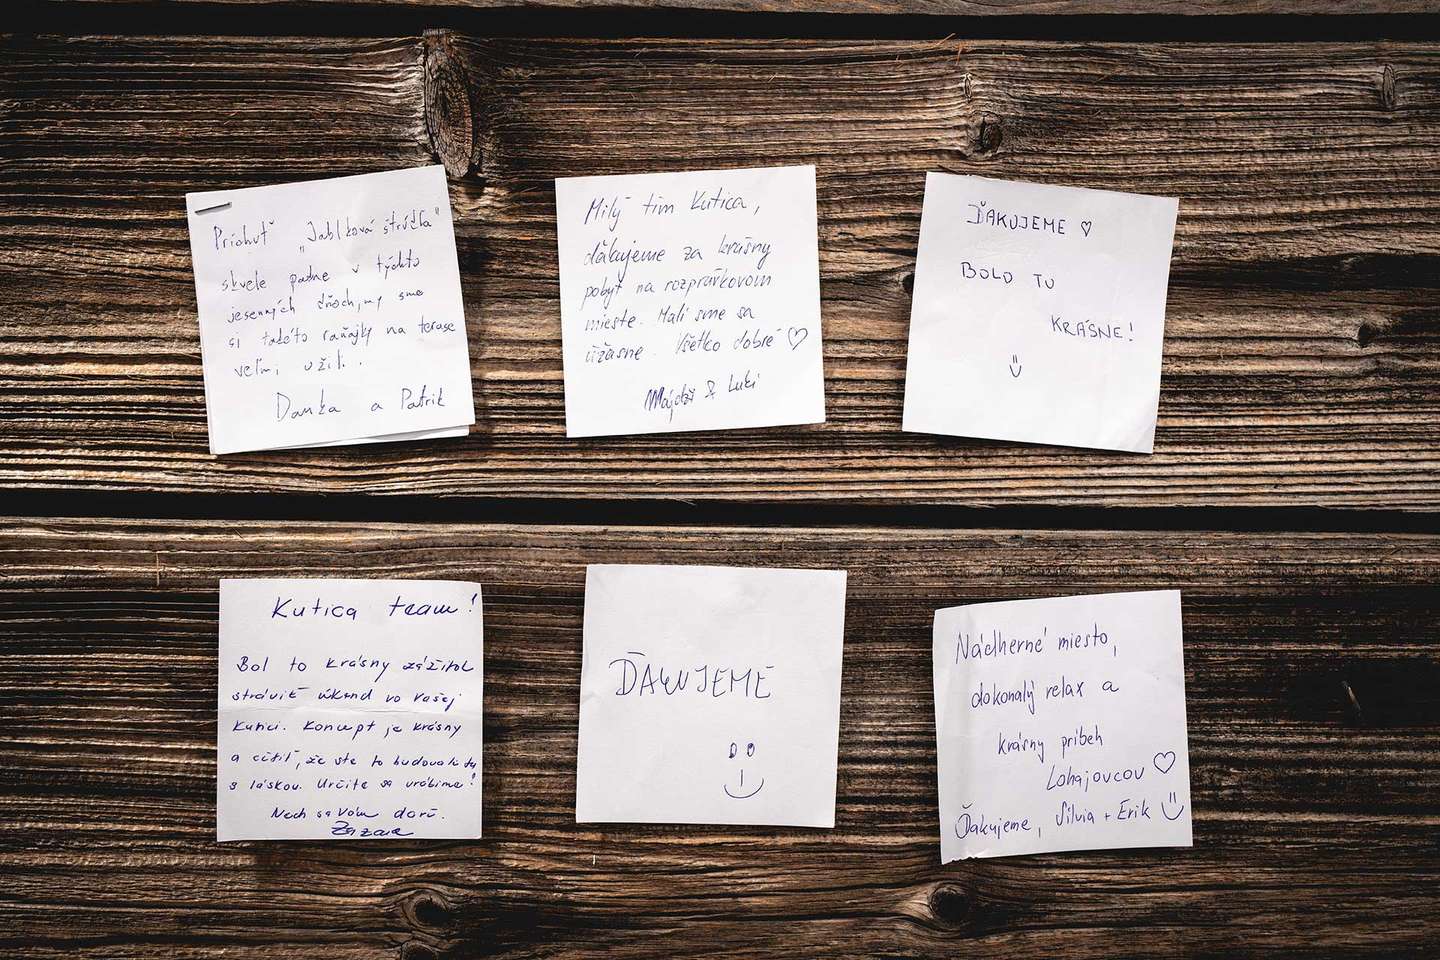 Príchuť „Jablková štrúdľa"
skvele padne v týchto
jesenných dňoch, my sme
si takéto raňajky na terase
veľmi užili.
Danka a Patrik
Milý tím Kutica,
ďakujeme za krásny
pobyt na rozprávkovom
mieste. Mali sme sa
úžasne. Všetko dobré ♡
& Luki
ĎAKUJEME ♡
BOLO TU
KRÁSNE!
Kutica team!
Bol to krásny zážitok
stráviť víkend vo Vašej
Kutici. Koncept je krásny
a cítiť, že ste to budovali
s láskou. Určite sa vrátime!
Nech sa Vám darí.
ĎAKUJEME
Nádherné miesto,
dokonalý relax a
krásny príbeh
Lohajovcov ♡
Ďakujeme, Silvia + Erik